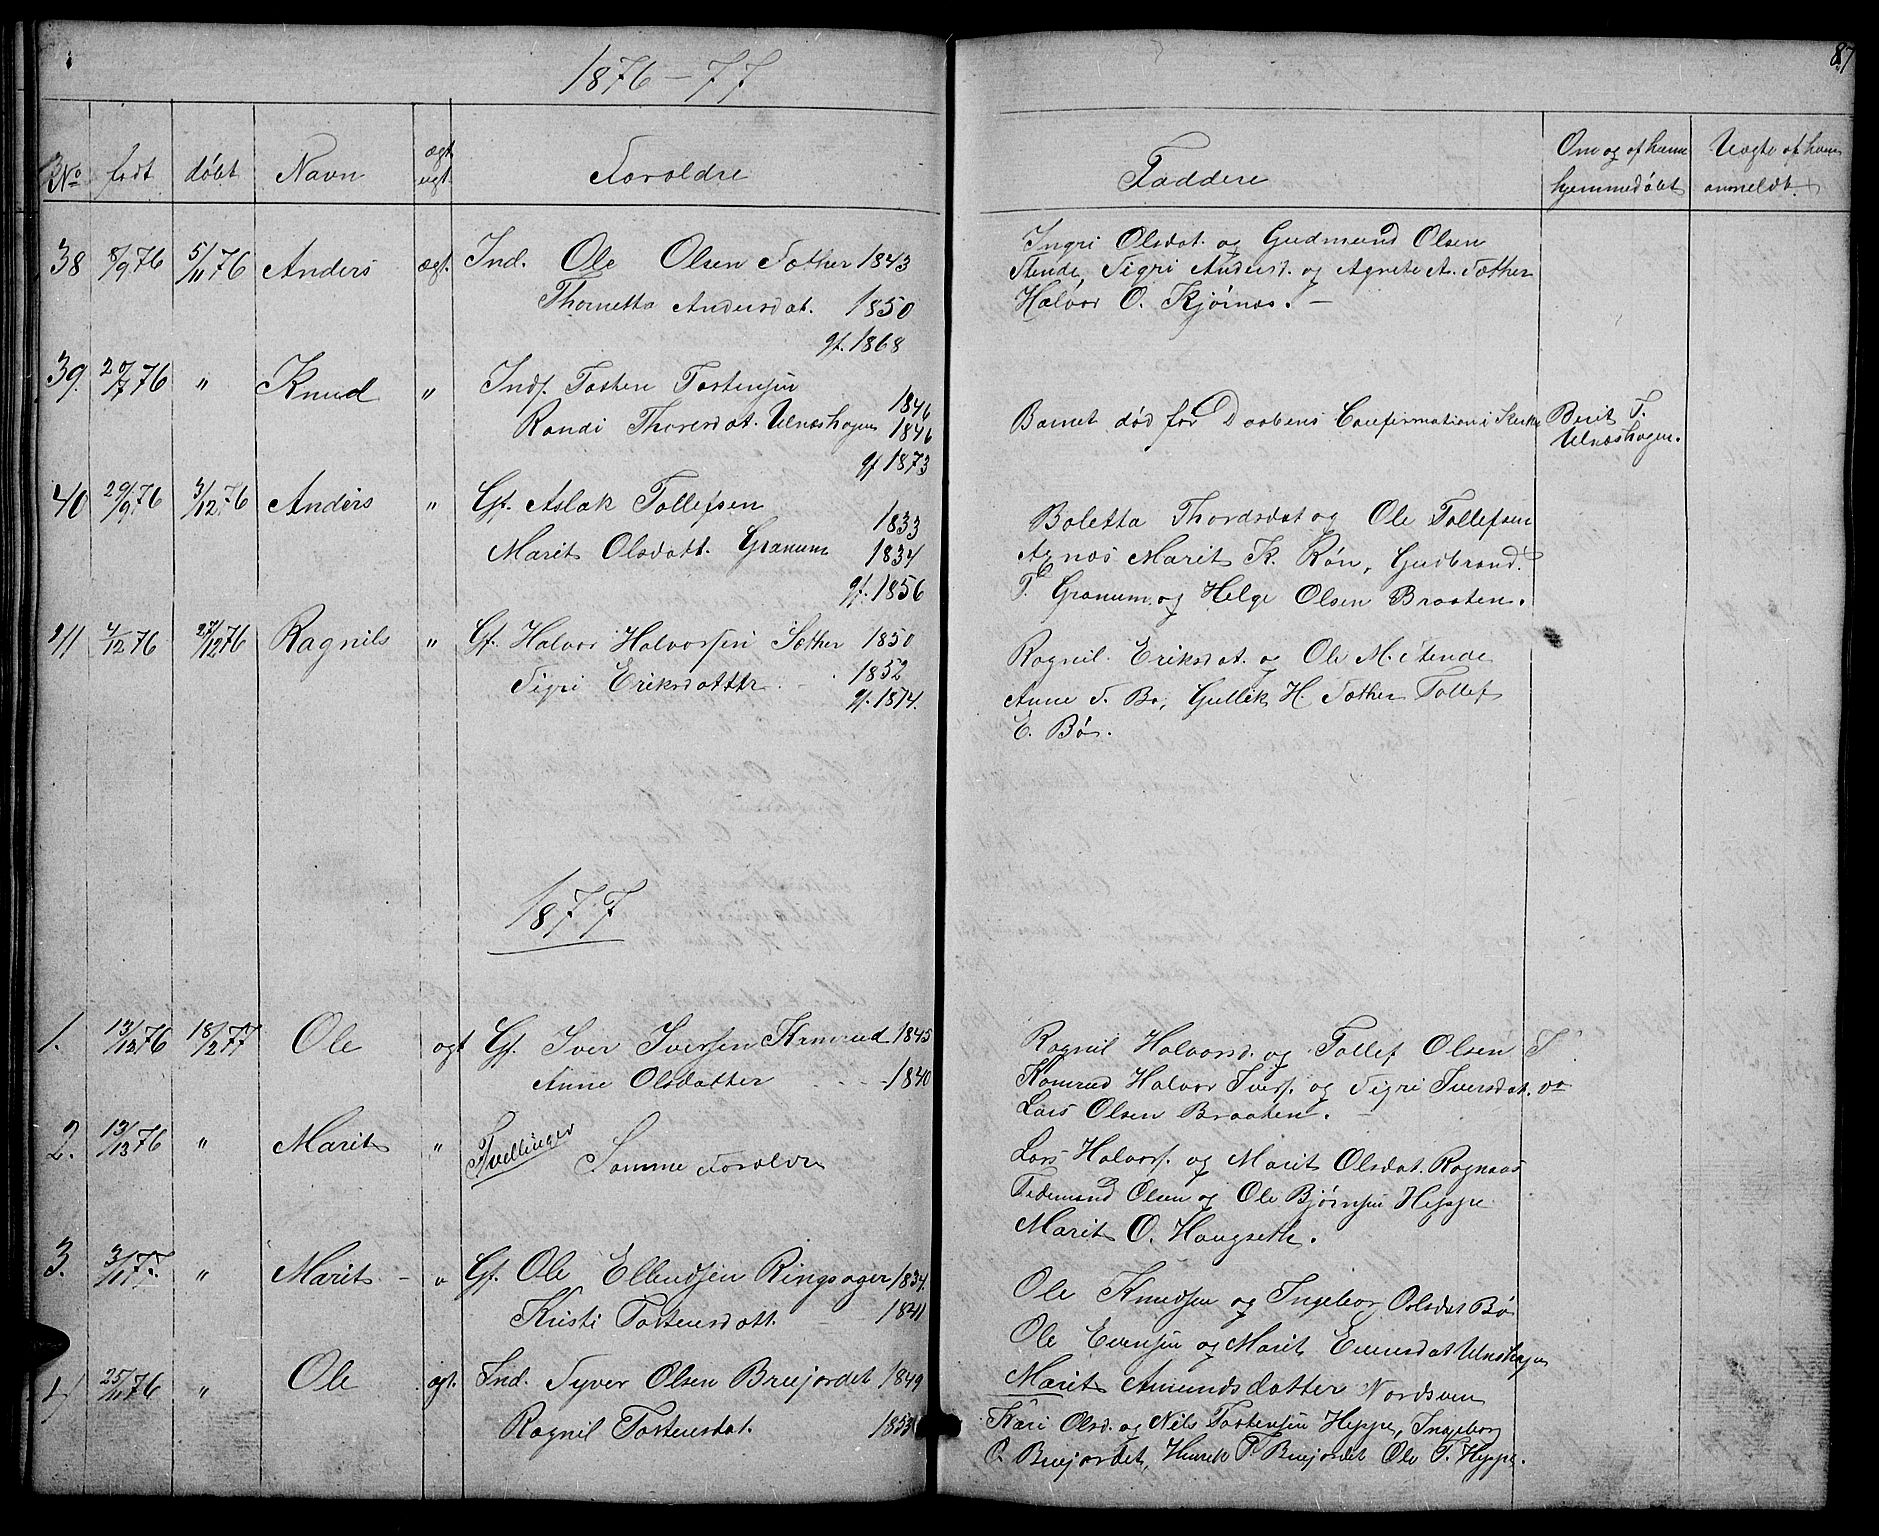 1876-77
87
No
født
døbt
Navn
ægt. uægt.
Forældre
Faddere
Om og af hvem hjemmedøbt
Vægte af hvem anmeldt.
38 8/9 76 5/11 76 Anders ægt. Ind. Ole Olsen Sæther 1843
Thornetta Andersdat. 1850
gf. 1868
Ingri Olsdat. og Gudmund Olsen
Stende, Sigri Andersd. og Agnete A. Sæther
Halvor O. Kjørnæs. -
39. 20/7 76 " Knud " Inds. Tosten Tostensen 1846
Randi Thoresdat. Ulnæshagen 1846
gf 1873
Barnet død før Daabens Confirmation i Kirke
Berit T.
Ulnæshagen.
40 29/9 76 3/12 76 Anders " Gf. Aslak Tollefsen 1833
Marit Olsdatt. Granum 1834
gf. 1856
Boletta Thordsdat og Ole Tollefsen
Agnæs Marit K. Røn, Gudbrand
T. Granum og Helge Olsen Braaten.
41 4/12 76 27/12 76 Ragnil " Gf. Halvor Halvorsen Sæther 1850
Sigri Eriksdatter 1852
gf. 1874.
Ragnil Eriksdat. og Ole M. Stende
Anne S. Bø, Gullik H. Sæther Tollef
E. Bø.
1877
1. 13/12 76 18/2 77 Ole ægt Gf. Iver Iversen Kamrud 1845
Anne Olsdatter 1840
Ragnil Halvorsd. og Tollef Olsen T
Kamrud Halvor Ivers. og Sigri Iversdat. do
Lars Olsen Braaten.
2. 13/12 76 " Marit " Tvillinger Samme Forældre
Lars Halvors. og Marit Olsdat. Ragnaas
Fedemand Olsen og Ole Bjørnsen Heppe
Marit O. Haugseth.
3. 3/1 77 " Marit - " Gf. Ole Ellendsen Ringsager 1834.
Kristi Tostensdatt. 1841
Ole Knudsen og Ingeborg Olsdat Bø
Ole Evensen og Marit Evensdat Ulnæshagen
Marit Amundsdatter Nordsveen
4 25/11 76 " Ole ægt. Ind. Syver Olsen Bruejordet 1849
Ragnil Tostensdat. 1853
Kari Olsd. og Nils Tostensen Heppe, Ingeborg
O. Bruejordet, Henrik P. Bruejordet Ole T. Heppe.